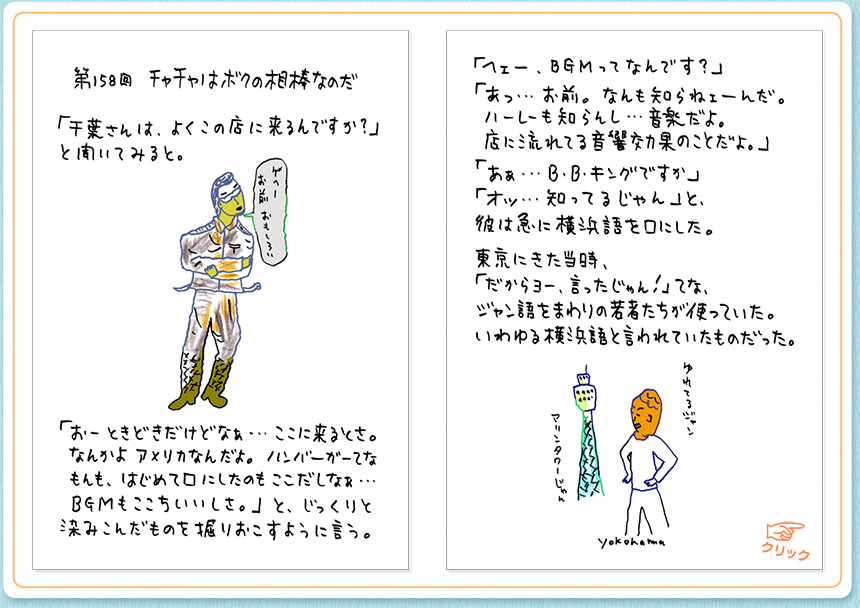 第158回 チャチャはボクの相棒なのだ
「千葉さんは、よくこの店に来るんですか?」
と聞いてみると。
ゲヘー
お前 おもしろい
「おーときどきだけどなぁ…ここに来るとさ。
なんかよアメリカなんだよ。ハンバーガーてな
もんも、はじめて口にしたのもここだしなぁ…
BGMもここちいいしさ。」と、じっくりと
染みこんだものを掘りおこすように言う。
「ヘェー、BGMってなんです?」
「あっ…お前。なんも知らねェーんだ。
ハーレーも知らんし…音楽だよ。
店に流れてる音響効果のことだよ。」
「あぁ…B・B・キングですか」
「オッ…知ってるじゃん」と、
彼は急に横浜語を口にした。
東京にきた当時、
「だからヨー、言ったじゃん!」てな、
ジャン語をまわりの若者たちが使っていた。
いわゆる横浜語と言われていたものだった。
ゆれてるジャン
マリンタワーじゃん
yokohama
クリック